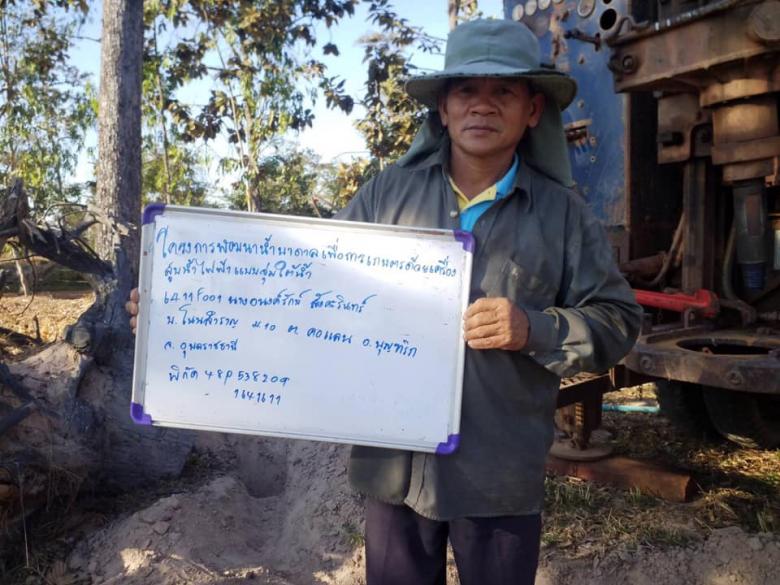 โครงการพัฒนาน้ำบาดาลเพื่อการเกษตรด้วยเครื่อง
สูบน้ำไฟฟ้าแบบจุ่มใต้น้ำ
นางอนงค์รักษ์
บ. โนนสำราญ ม.10 ต. คอแลน อ. บุณฑริก
จ. อุบลราชธานี
พิกัด 48P 538209
1641611